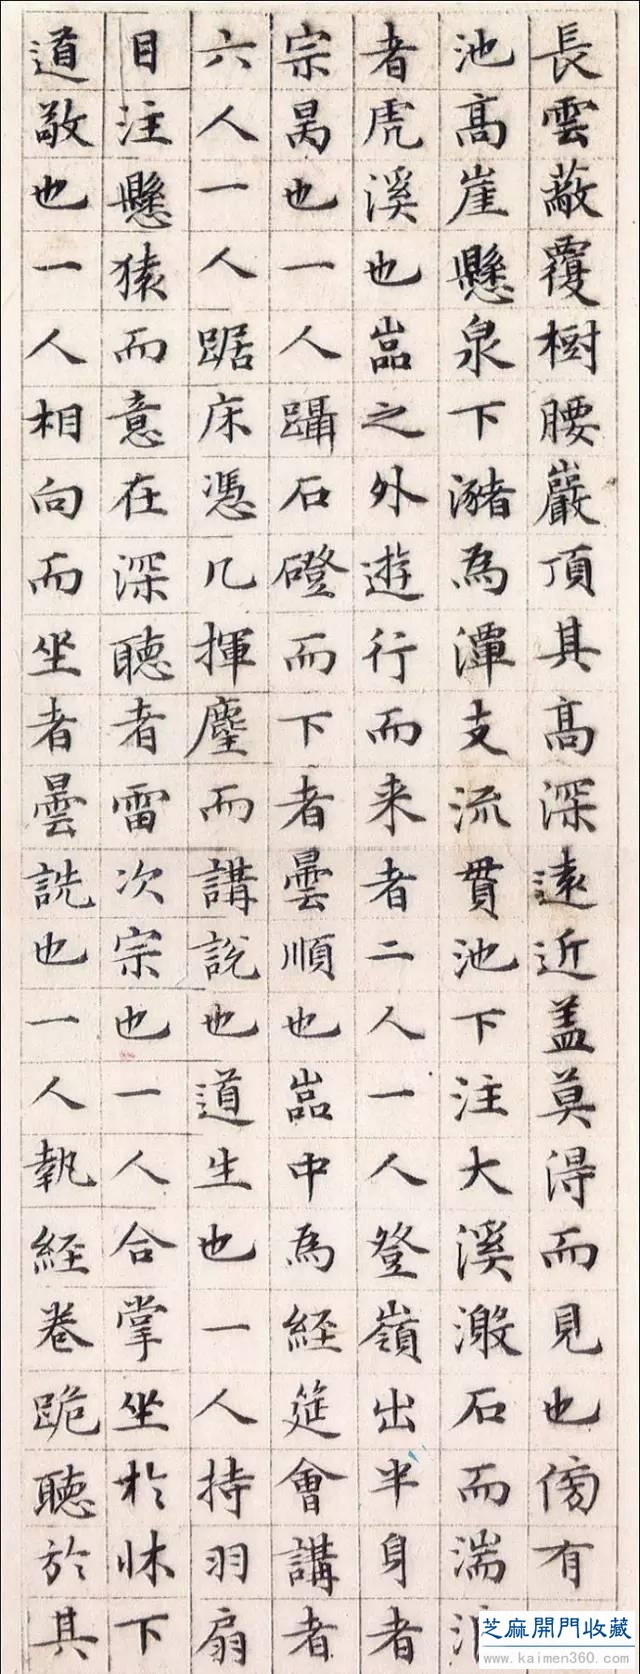 長雲蔽覆樹腰巖頂其高深遠近盖莫得而見也傍有
池高崖懸泉下瀦為潭支流貫池下注大溪激石而湍
者虎溪也嵓之外遊行而来者二人一人登嶺出半身者
宗昺也一人躡石磴而下者曇順也嵓中為經筵會講者
六人一人踞床憑几揮麈而講說也道生也一人持羽扇
目注懸猿而意在深聽者雷次宗也一人合掌坐於牀下
道敬也一人相向而坐者曇詵也一人執經卷跪聽於其
芝麻開門收藏
www.kaimen360.com